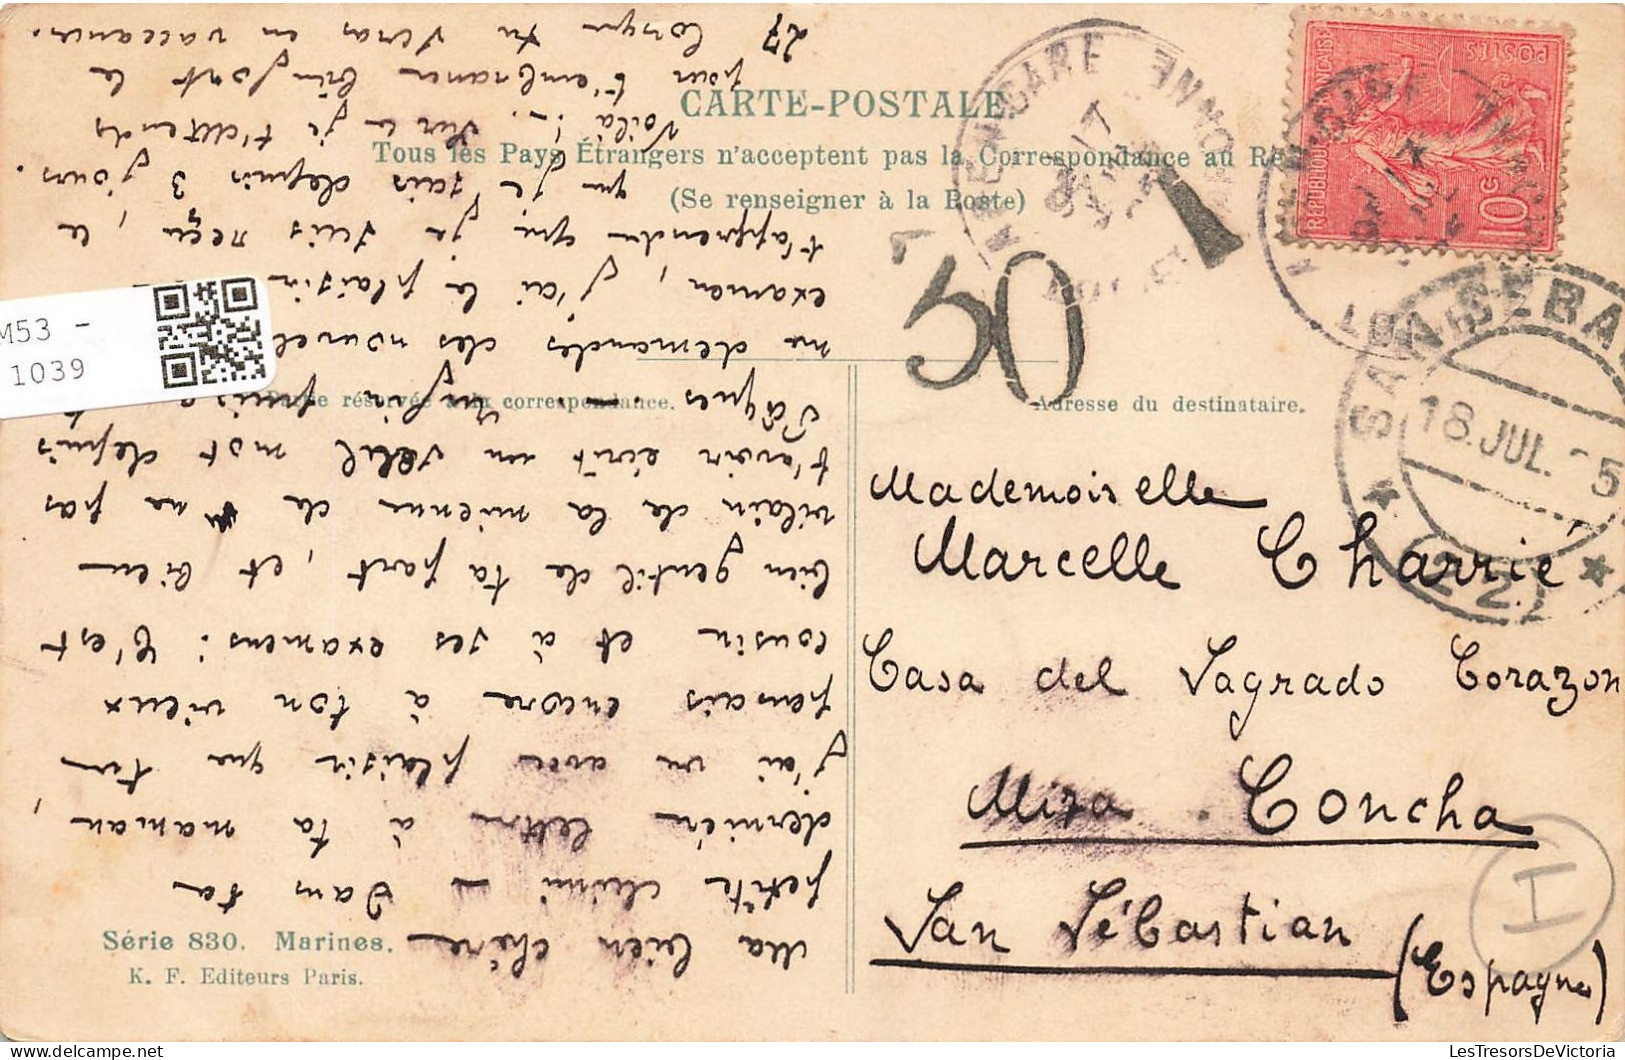 CARTE-POSTALE.
Tous les Pays Étrangers n'acceptent pas la Correspondance au Re
(Se renseigner à la Poste)
Partie réservée à la correspondance.
Adresse du destinataire.
Ma bien chère
petite Mimi — Dans ta
dernière lettre à ta maman,
j'ai vu avec plaisir que tu
pensais encore à ton vieux
cousin et à ses examens : C'est
bien gentil de ta part, et bien
vilain de la mienne de ne pas
t'avoir écrit un seul mot depuis
Pâques. — Enfin puisque
me demandes des nouvel
examen, j'ai le plaisir
t'apprendre que je suis reçu, le
que je sais depuis 3 jours.
Voilà !.. Sur ce je t'attends
pour t'embrasser bien fort le
lorsque tu seras en vaccances.
27
Mademoiselle
Marcelle Charrié
Casa del Sagrado Corazon
Mira. Concha
San Sébastian
(Espagne)
Série 830. Marines.
K. F. Editeurs Paris.
50
T
I
REPUBLIQUE FRANÇAISE
POSTES
10c
AGEN GARE
LOT-ET-GARONNE
SAN SEBA
18. JUL. 05
(22)
M53 -
1039
LesTresorsDeVictoria